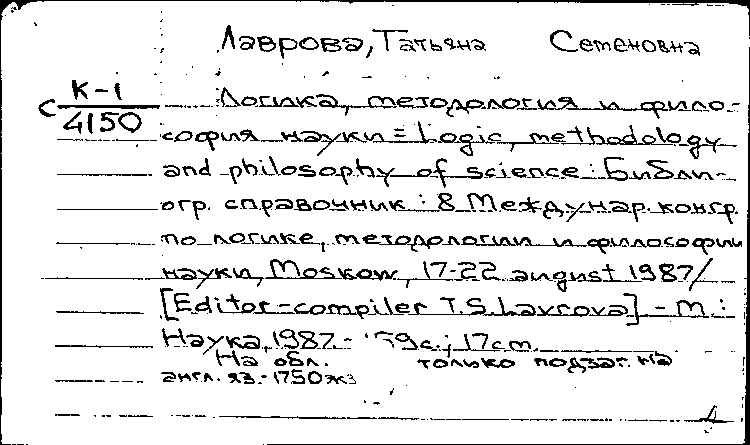 Лаврова, Татьяна Семеновна
С К-1
4150
Логика, методология и фило-
софия науки = Logic, methodology
and philosophy of science : Библи-
огр. справочник : 8 Междунар. конгр.
по логике, методологии и философии
науки, Moskow, 17-22 august 1987 /
[Editor-compiler T.S. Lavrova] - М. :
Наука, 1987. - с. ; 17 cm.
На обл. только подзаг. на
англ. яз. - 1750 экз